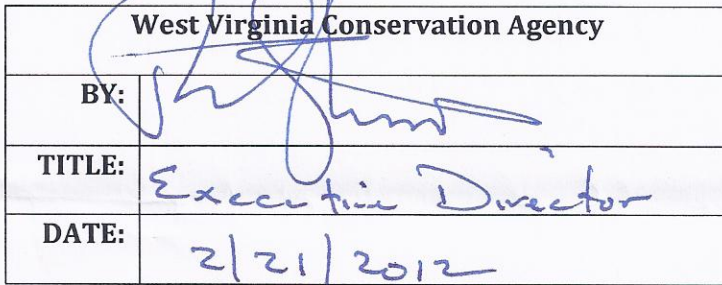 West Virginia Conservation Agency
BY:
TITLE: Executive Director
DATE: 2/21/2012